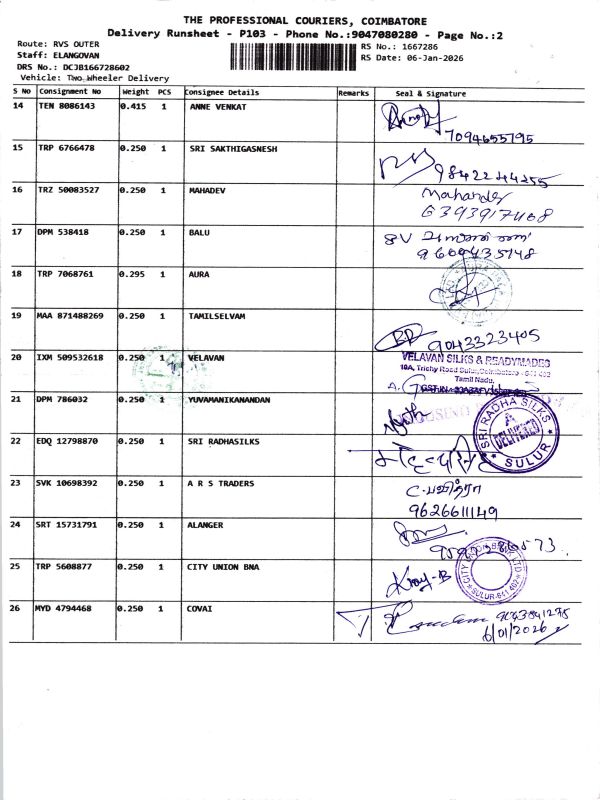 THE PROFESSIONAL COURIERS, COIMBATORE
Delivery Runsheet - P103 - Phone No.:9047080280 - Page No.:2
Route: RVS OUTER
RS No.: 1667286
Staff: ELANGOVAN
RS Date: 06-Jan-2026
DRS No.: DCJB166728602
Vehicle: Two Wheeler Delivery
S No Consignment No Weight PCS Consignee Details Remarks Seal & Signature
14 TEN 8086143 0.415 1 ANNE VENKAT
7094655795
15 TRP 6766478 0.250 1 SRI SAKTHIGASNESH
9842244255
16 TRZ 50083527 0.250 1 MAHADEV
Mahadev
6393917468
17 DPM 538418 0.250 1 BALU
9600435748
18 TRP 7068761 0.295 1 AURA
19 MAA 871488269 0.250 1 TAMILSELVAM
9043323405
20 IXM 509532618 0.250 1 VELAVAN
VELAVAN SILKS & READYMADES
10A, Trichy Road Sulur, Coimbatore - 641 402
Tamil Nadu.
21 DPM 786032 0.250 1 YUVAMANIKANANDAN
22 EDQ 12798870 0.250 1 SRI RADHASILKS
SRI RADHA SILKS
DELIVERED
SULUR
23 SVK 10698392 0.250 1 A R S TRADERS
C. பவித்ரா
9626611149
24 SRT 15731791 0.250 1 ALANGER
25 TRP 5608877 0.250 1 CITY UNION BNA
CITY UNION BANK LTD
SULUR-641 402
26 MYD 4794468 0.250 1 COVAI
6/01/2026